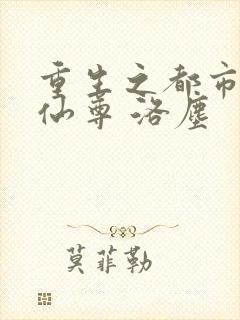 重生之都市
仙尊 洛塵
莫菲勒